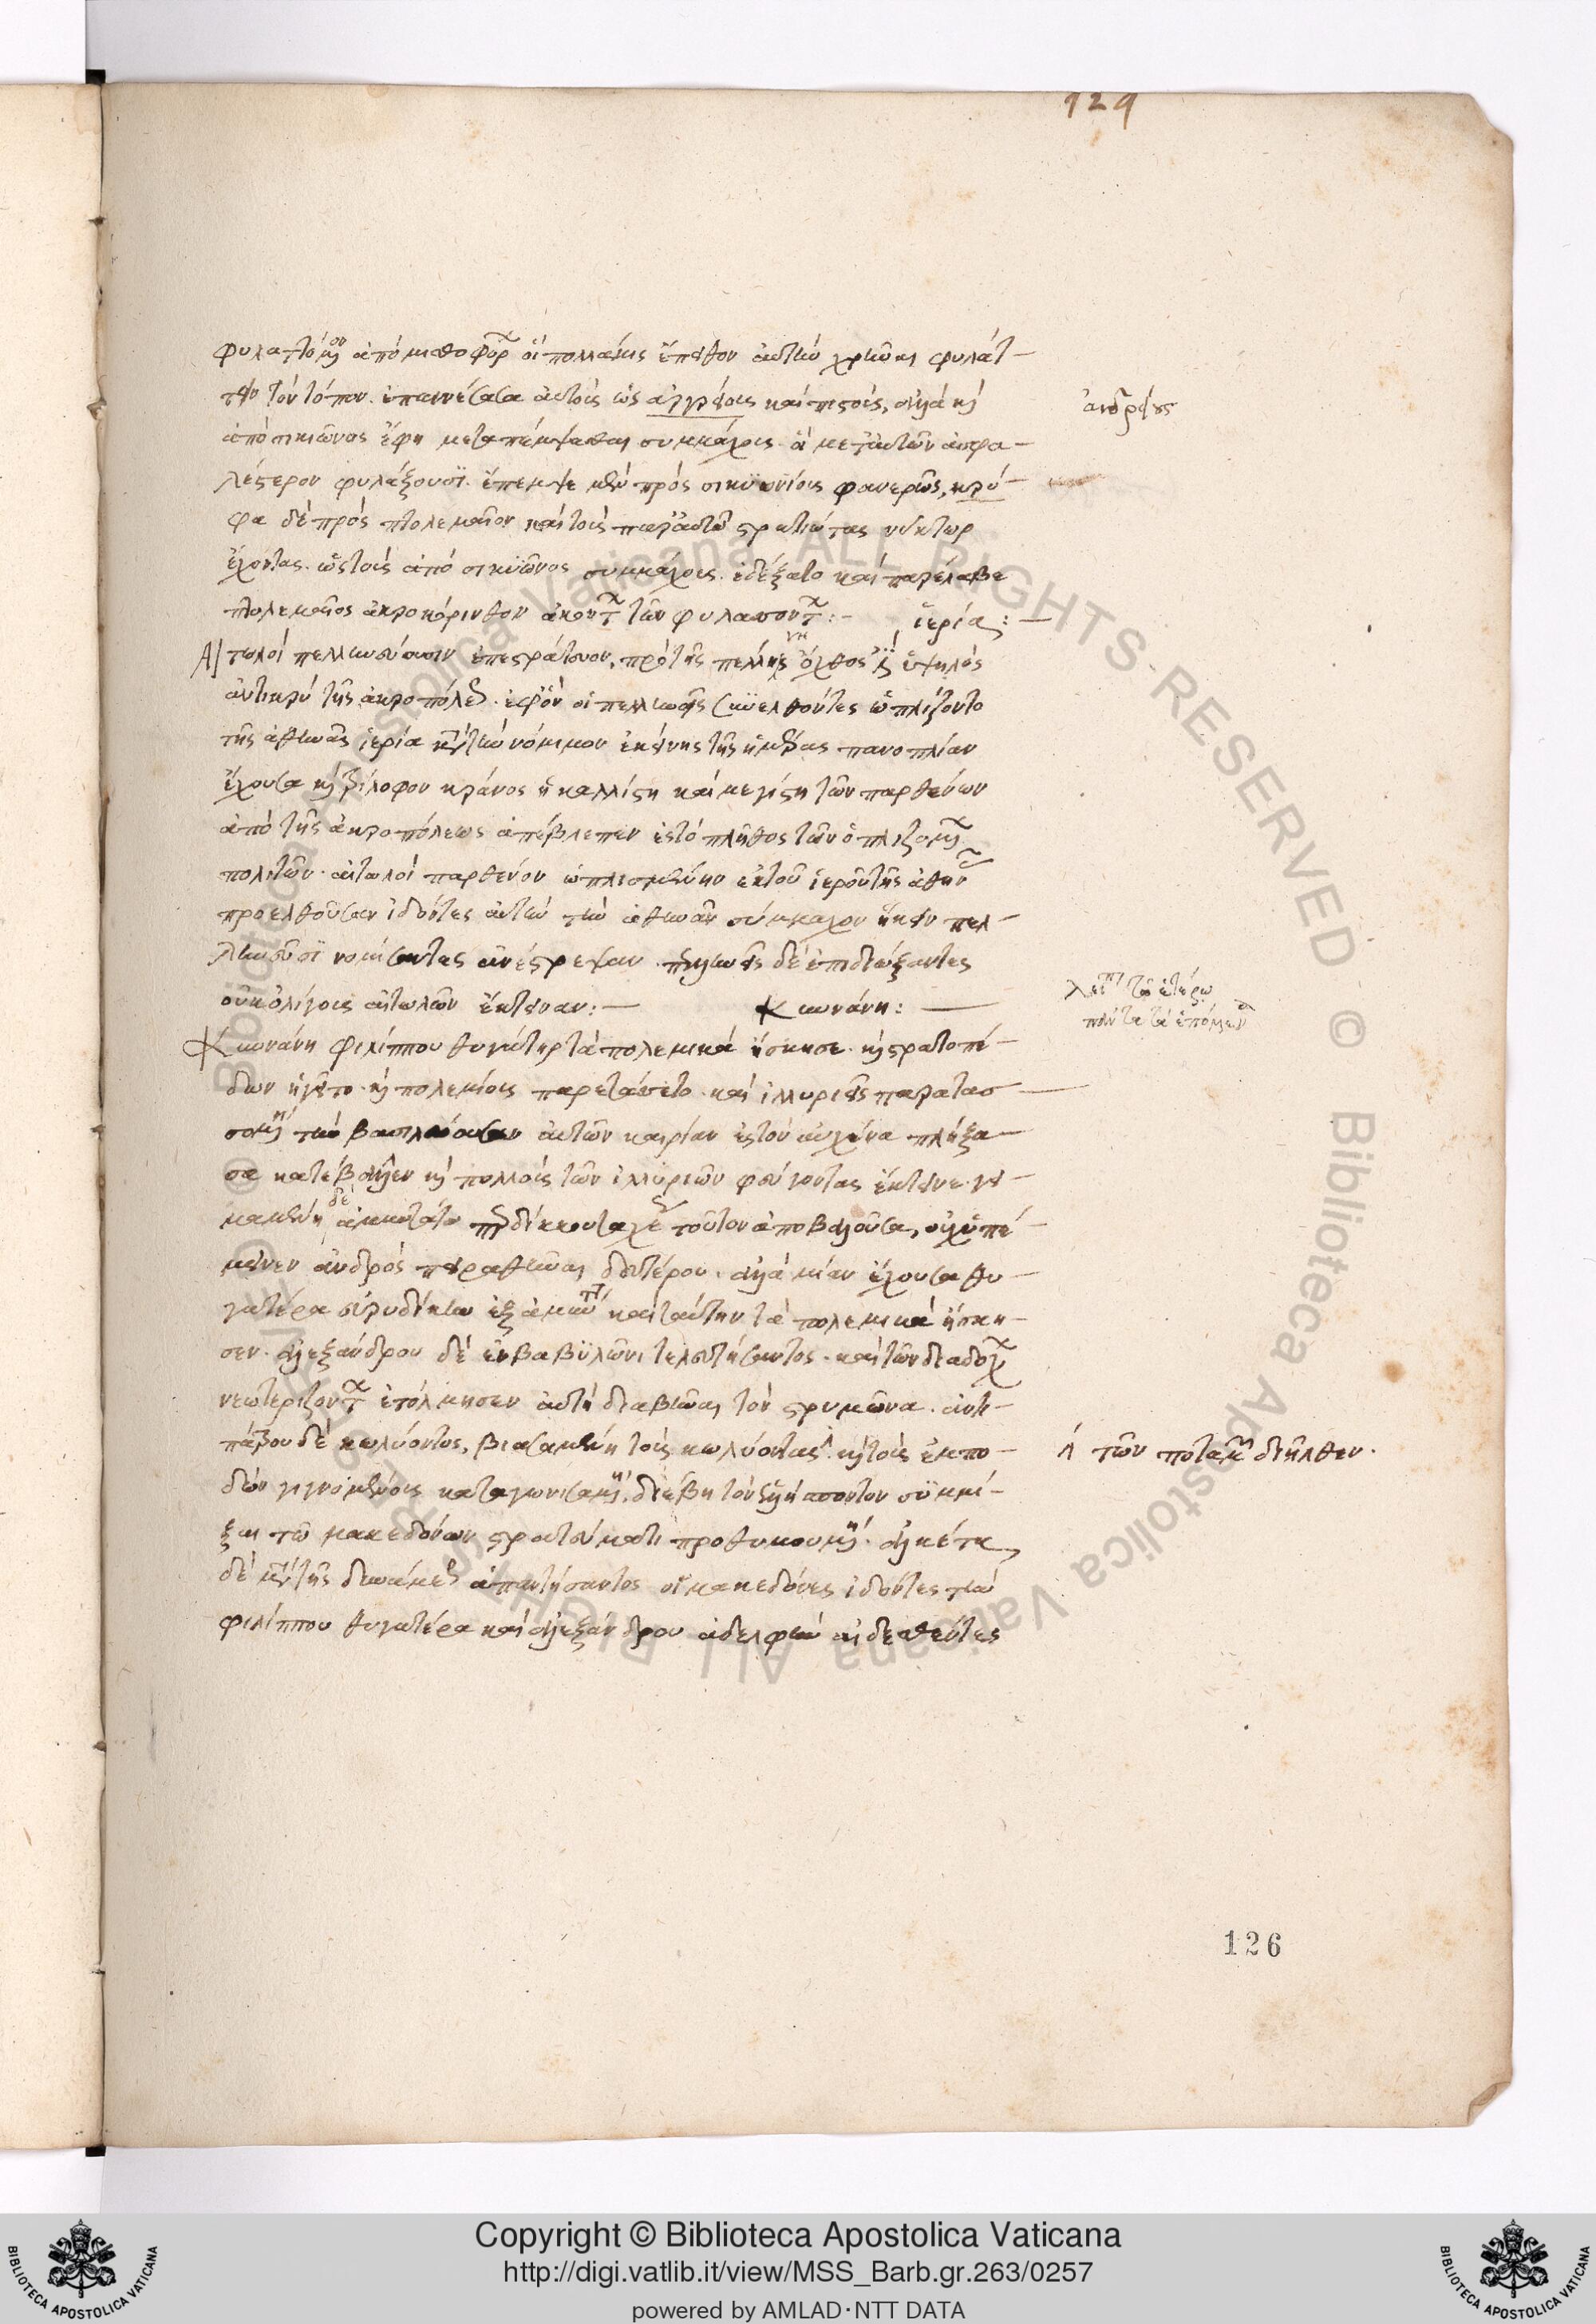 129
φυλαττόμενον ἀπὸ μισθοφόρων οἳ πολλάκις ἔπειθον αὐτὴν χρῆναι φυλάτ-
τειν τὸν τόπον. ἐπαινέσασα αὐτοὺς ὡς καὶ πιστοὺς, ἀλλὰ καὶ
ἀνδρείους
ἀπὸ σικυῶνος ἔφη μεταπέμψασθαι συμμάχους οἳ μετ' αὐτῶν ἀσφα-
λέστερον φυλάξουσι. ἔπεμψε μὲν πρὸς σικυωνίους φανερῶς, κρύ-
φα δὲ πρὸς πτολεμαῖον καὶ τοὺς παρ' αὐτοῦ στρατιώτας νύκτωρ
ἔχοντας. ὡς τοὺς ἀπὸ σικυῶνος συμμάχους ἐδέξατο καὶ παρέλαβε
πτολεμαῖος ἀκροκόρινθον ἀκόντων τῶν φυλασσόντων:- ἱερία:-
Αἰτωλοὶ πελληνεῦσιν ἐπεστράτευον, πρὸ τῆς πελλήνης ὄχθος ἐστὶ ὑψηλὸς
ἀντικρὺ τῆς ἀκροπόλεως. ἐφ' ὃν οἱ πελληνεῖς συνελθόντες ὡπλίζοντο
τῆς ἀθηνᾶς ἱερία κατὰ τὸ νόμιμον ἐκείνης τῆς ἡμέρας πανοπλίαν
ἔχουσα καὶ τρίλοφον κράνος ἡ καλλίστη καὶ μεγίστη τῶν παρθένων
ἀπὸ τῆς ἀκροπόλεως ἀπέβλεπεν ἐς τὸ πλῆθος τῶν ὁπλιζομένων
πολιτῶν. αἰτωλοὶ παρθένον ὡπλισμένην ἐκ τοῦ ἱεροῦ τῆς ἀθηνᾶς
προελθοῦσαν ἰδόντες αὐτὴν τὴν ἀθηνᾶν σύμμαχον ἥκειν πελ-
ληνεῦσι νομίσαντες ἀνέστρεψαν. πελληνεῖς δὲ ἐπιδιώξαντες
οὐκ ὀλίγους αἰτωλῶν ἔκτειναν:- Κυνάνη:
λείπει τῷ ἑτέρῳ
πάντα τὰ ἑπόμενα
Κυνάνη φιλίππου θυγάτηρ τὰ πολεμικὰ ἤσκησε. καὶ στρατοπέ-
δων ἡγεῖτο. καὶ πολεμίοις παρετάσσετο. καὶ ἰλλυριοῖς παρατασ-
σομένη τὴν βασιλεύουσαν αὐτῶν καιρίαν ἐς τὸν αὐχένα πλήξα-
σα κατέβαλεν καὶ πολλοὺς τῶν ἰλλυριῶν φεύγοντας ἔκτεινε. γη-
μαμένη δὲ ἀμύντᾳ τῷ περδίκκου ταχέως τοῦτον ἀποβαλοῦσα, οὐχ ὑπέ-
μεινεν ἀνδρὸς πειραθῆναι δευτέρου. ἀλλὰ μίαν ἔχουσα θυ-
γατέρα εὐρυδίκην ἐξ ἀμύντου καὶ ταύτην τὰ πολεμικὰ ἤσκη-
σεν. ἀλεξάνδρου δὲ ἐν βαβυλῶνι τελευτήσαντος. καὶ τῶν διαδόχων
νεωτεριζόντων ἐτόλμησεν αὐτὴ διαβῆναι τὸν στρυμῶνα. ἀντι-
πάτρου δὲ κωλύοντος, βιασαμένη τοὺς κωλύοντας. καὶ τοὺς ἐμπο-
τῶν ποταμὸν διῆλθεν.
δὼν γιγνομένους καταγωνισαμένη, διέβη τὸν ἑλλήσποντον συμμί-
ξαι τῷ μακεδόνων στρατεύματι προθυμουμένη. ἀλκέτα
δὲ μετὰ τῆς δυνάμεως ἀπαντήσαντος οἱ μακεδόνες ἰδόντες τὴν
φιλίππου θυγατέρα καὶ ἀλεξάνδρου ἀδελφὴν αἰδεσθέντες
126
Copyright © Biblioteca Apostolica Vaticana
http://digi.vatlib.it/view/MSS_Barb.gr.263/0257
powered by AMLAD·NTT DATA
BIBLIOTECA APOSTOLICA VATICANA
BIBLIOTECA APOSTOLICA VATICANA